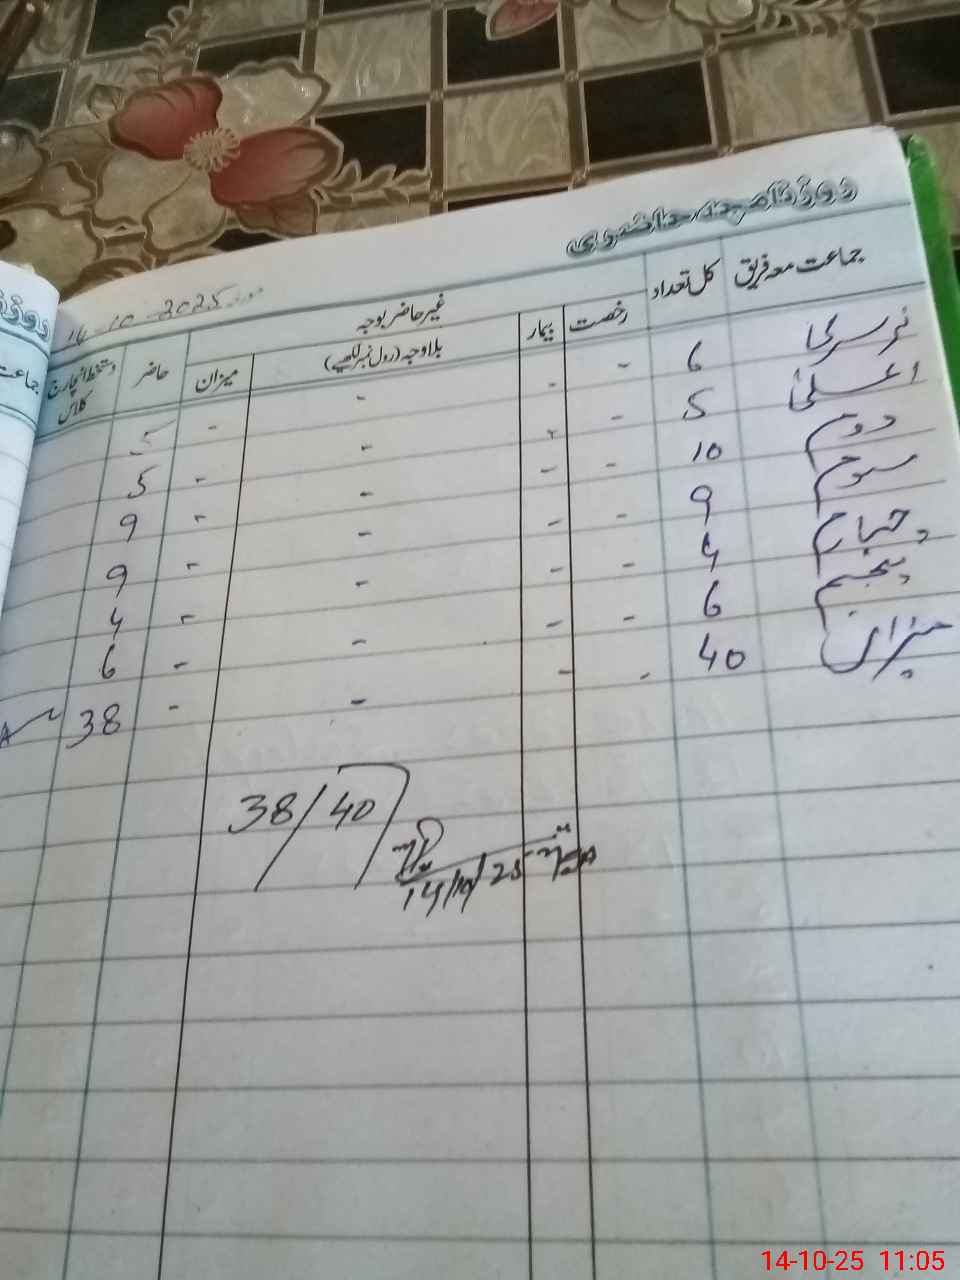 روزنامچہ حاضری
مورخہ 14-10-2025
جماعت معہ فریق کل تعداد غیر حاضر بوجہ حاضر دستخط انچارج کلاس
رخصت بیمار بلاوجہ (رول نمبر لکھیے) میزان
نرسری 6 - - - - 5
اعلیٰ 5 - - - - 5
دوم 10 - - - - 9
سوم 9 - - - - 9
چہارم 4 - - - - 4
پنجم 6 - - - - 6
میزان 40 - - - - 38
38/40
14/10/25
جماعت
14-10-25 11:05